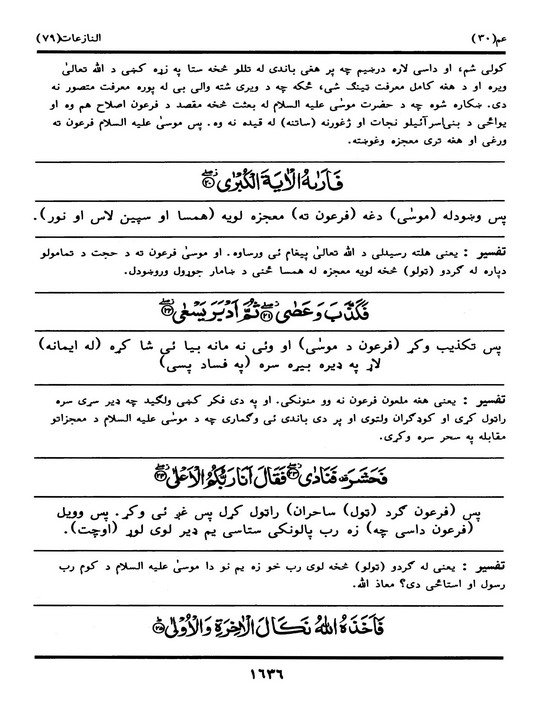 عم(٣٠) النازعات(٧٩)
کولی شم، او داسی لاره درښیم چه پر هغی باندی له تللو څخه ستا په زړه کښی د الله تعالیٰ
ویره او د هغه کامل معرفت ټینګ شی، ځکه چه د ویری شته والی بی له پوره معرفت متصور نه
دی. ښکاره شوه چه د حضرت موسٰی علیه السلام له بعثت څخه مقصد د فرعون اصلاح هم وه او
یواځی د بنی‌اسرآئیلو نجات او ژغورنه (ساتنه) له قیده نه وه. پس موسٰی علیه السلام فرعون ته
ورغی او هغه تری معجزه وغوښته.
فَاَرٰىهُ الْاٰيَةَ الْكُبْرٰى ۝٢٠
پس وښودله (موسٰی) دغه (فرعون ته) معجزه لویه (همسا او سپین لاس او نور).
تفسیر : یعنی هلته رسیدلی د الله تعالیٰ پیغام ئی ورساوه. او موسٰی فرعون ته د حجت د تمامولو
دپاره له ګردو (ټولو) څخه لویه معجزه له همسا ځنی د ښامار جوړول وروښودل.
فَكَذَّبَ وَعَصٰى ۝٢١ ثُمَّ اَدْبَرَ يَسْعٰى ۝٢٢
پس تکذیب وکړ (فرعون د موسٰی) او وئی نه مانه بیا ئی شا کړه (له ایمانه)
لاړ په ډیره بیړه سره (په فساد پسی)
تفسیر : یعنی هغه ملعون فرعون نه وو منونکی. او په دی فکر کښی ولګید چه ډیر سړی سره
راټول کړی او کوډګران ولټوی او پر دی باندی ئی وګماری چه د موسٰی علیه السلام د معجزاتو
مقابله په سحر سره وکړی.
فَحَشَرَ فَنَادٰى ۝٢٣ فَقَالَ اَنَا رَبُّكُمُ الْاَعْلٰى ۝٢٤
پس (فرعون ګرد (ټول) ساحران) راټول کړل پس غږ ئی وکړ. پس وویل
(فرعون داسی چه) زه رب پالونکی ستاسی یم ډیر لوی لوړ (اوچت).
تفسیر : یعنی له ګردو (ټولو) څخه لوی رب خو زه یم نو دا موسٰی علیه السلام د کوم رب
رسول او استاځی دی؟ معاذ الله.
فَاَخَذَهُ اللّٰهُ نَكَالَ الْاٰخِرَةِ وَالْاُوْلٰى ۝٢٥
١٦٣٦